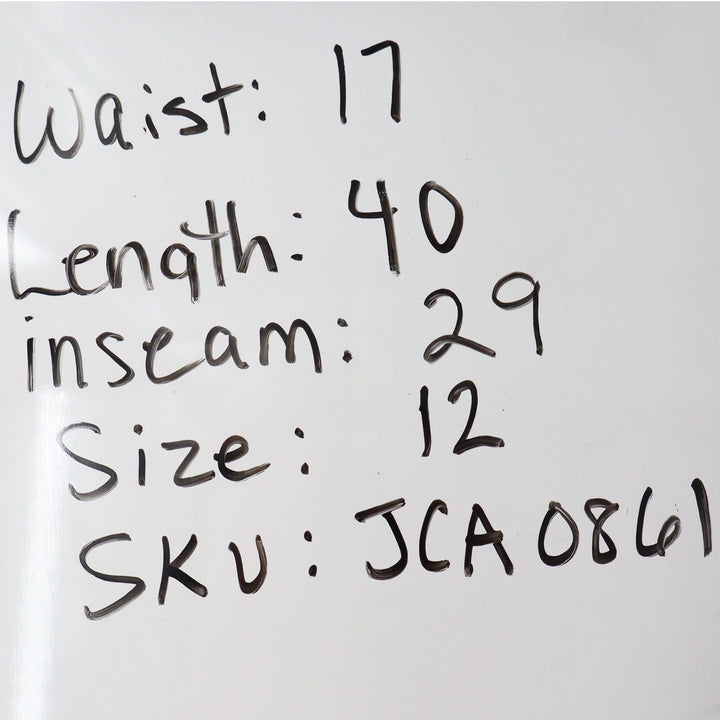 Waist: 17
Length: 40
inseam: 29
Size: 12
SKU: JCA0861